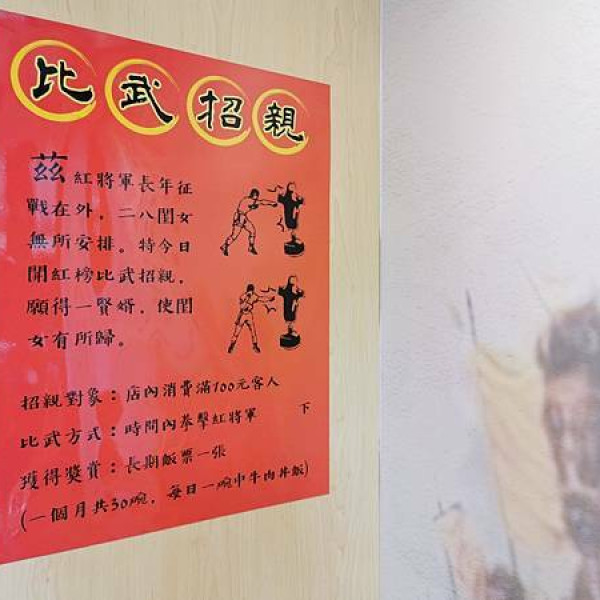 比武招親
茲紅將軍長年征
戰在外，二八閨女
無所安排。特今日
開紅榜比武招親，
願得一賢婿，使閨
女有所歸。
招親對象：店內消費滿100元客人
比武方式：時間內拳擊紅將軍　下
獲得獎賞：長期飯票一張
(一個月共30碗，每日一碗中牛肉丼飯)